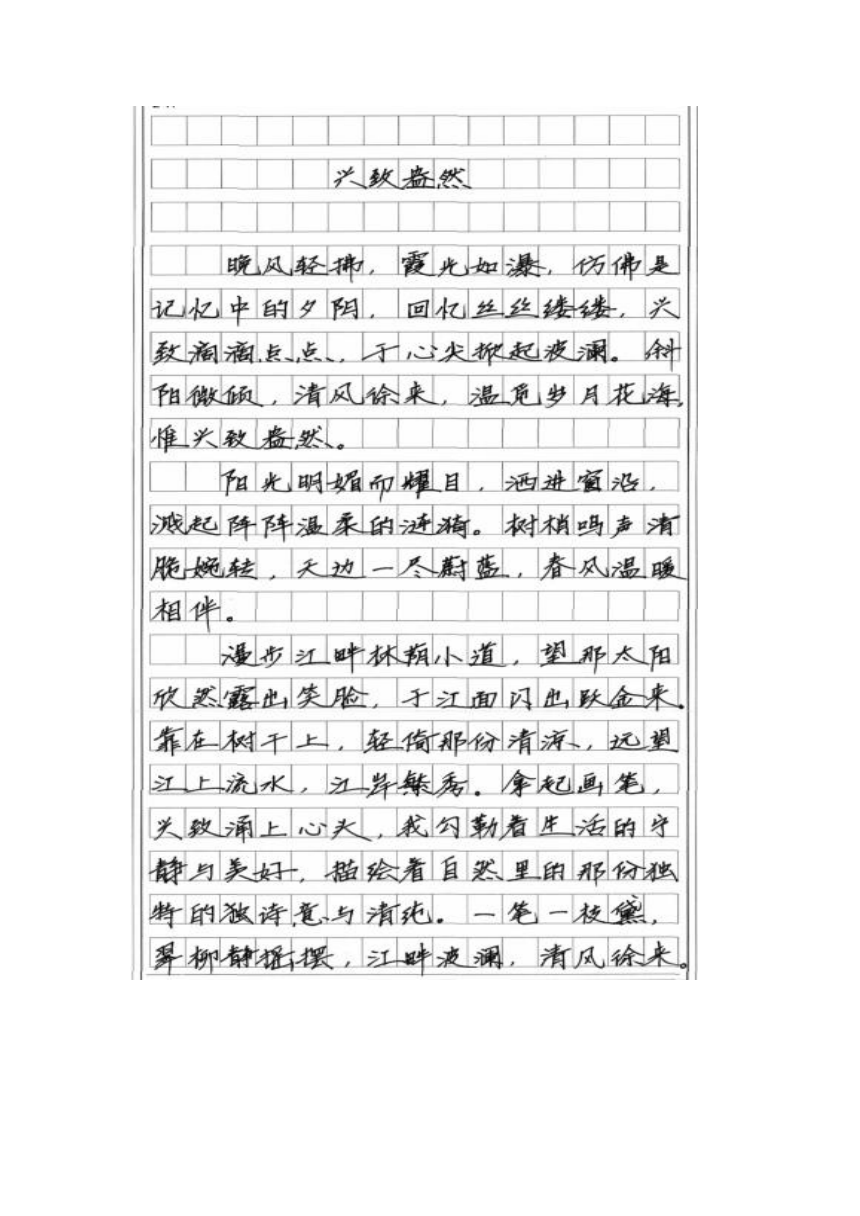 兴致盎然
晚风轻拂，霞光如瀑，仿佛是
记忆中的夕阴，回忆丝丝缕缕，兴
致滴滴点点，于心尖掀起波澜。斜
阳微倾，清风徐来，温觅岁月花海，
惟兴致盎然。
阳光明媚而耀目，洒进窗沿，
溅起阵阵温柔的涟漪。树梢鸣声清
脆婉转，天边一尽蔚蓝，春风温暖
相伴。
漫步江畔林荫小道，望那太阳
欣然露出笑脸，于江面闪出跃金来。
靠在树干上，轻倚那份清凉，远望
江上流水，江岸繁秀。拿起画笔，
兴致涌上心头，我勾勒着生活的宁
静与美好，描绘着自然里的那份独
特的独诗意与清纯。一笔一枝黛，
翠柳静摇摆，江畔波澜，清风徐来。